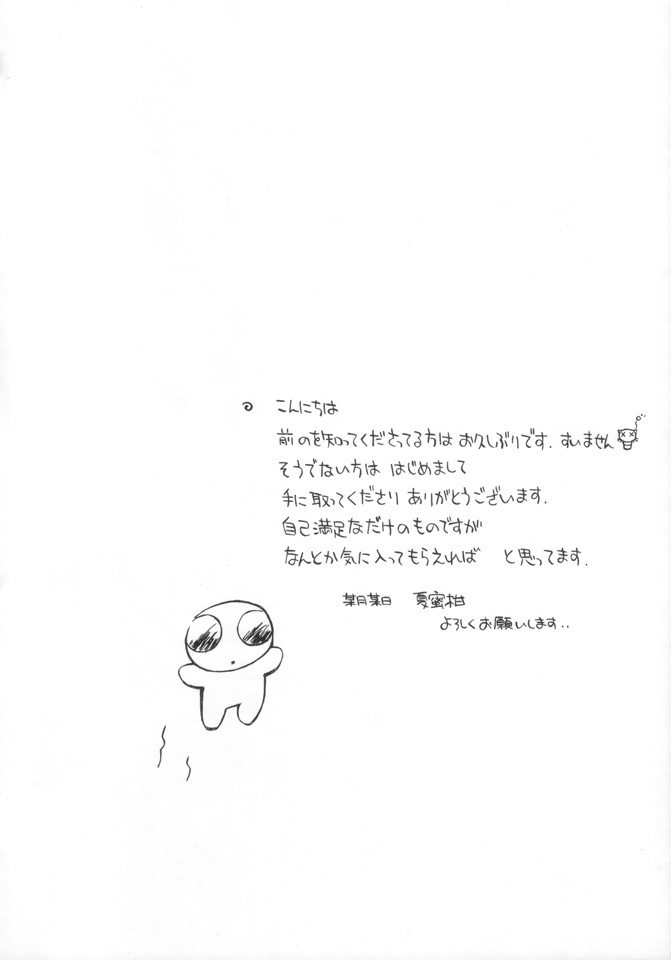 こんにちは
前のを知ってくださってる方は お久しぶりです. すいません
そうでない方は はじめまして
手に取ってくださり ありがとうございます.
自己満足なだけのものですが
なんとか気に入ってもらえれば と思ってます.
某月某日 夏蜜柑
よろしくお願いします..